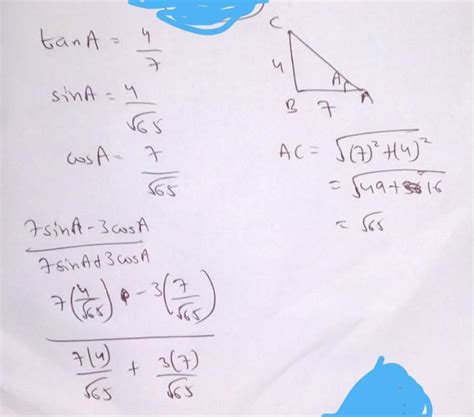 tanA = 4/7
sinA = 4/√65
cosA = 7/√65
C
4
A
B 7 A
AC = √(7)²+(4)²
= √49+16
= √65
7sinA - 3cosA / 7sinA + 3cosA
7(4/√65) - 3(7/√65)
7(4)/√65 + 3(7)/√65